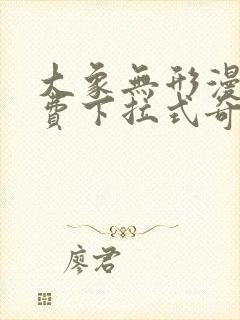 大象無形漫
費下拉式奇
廖君